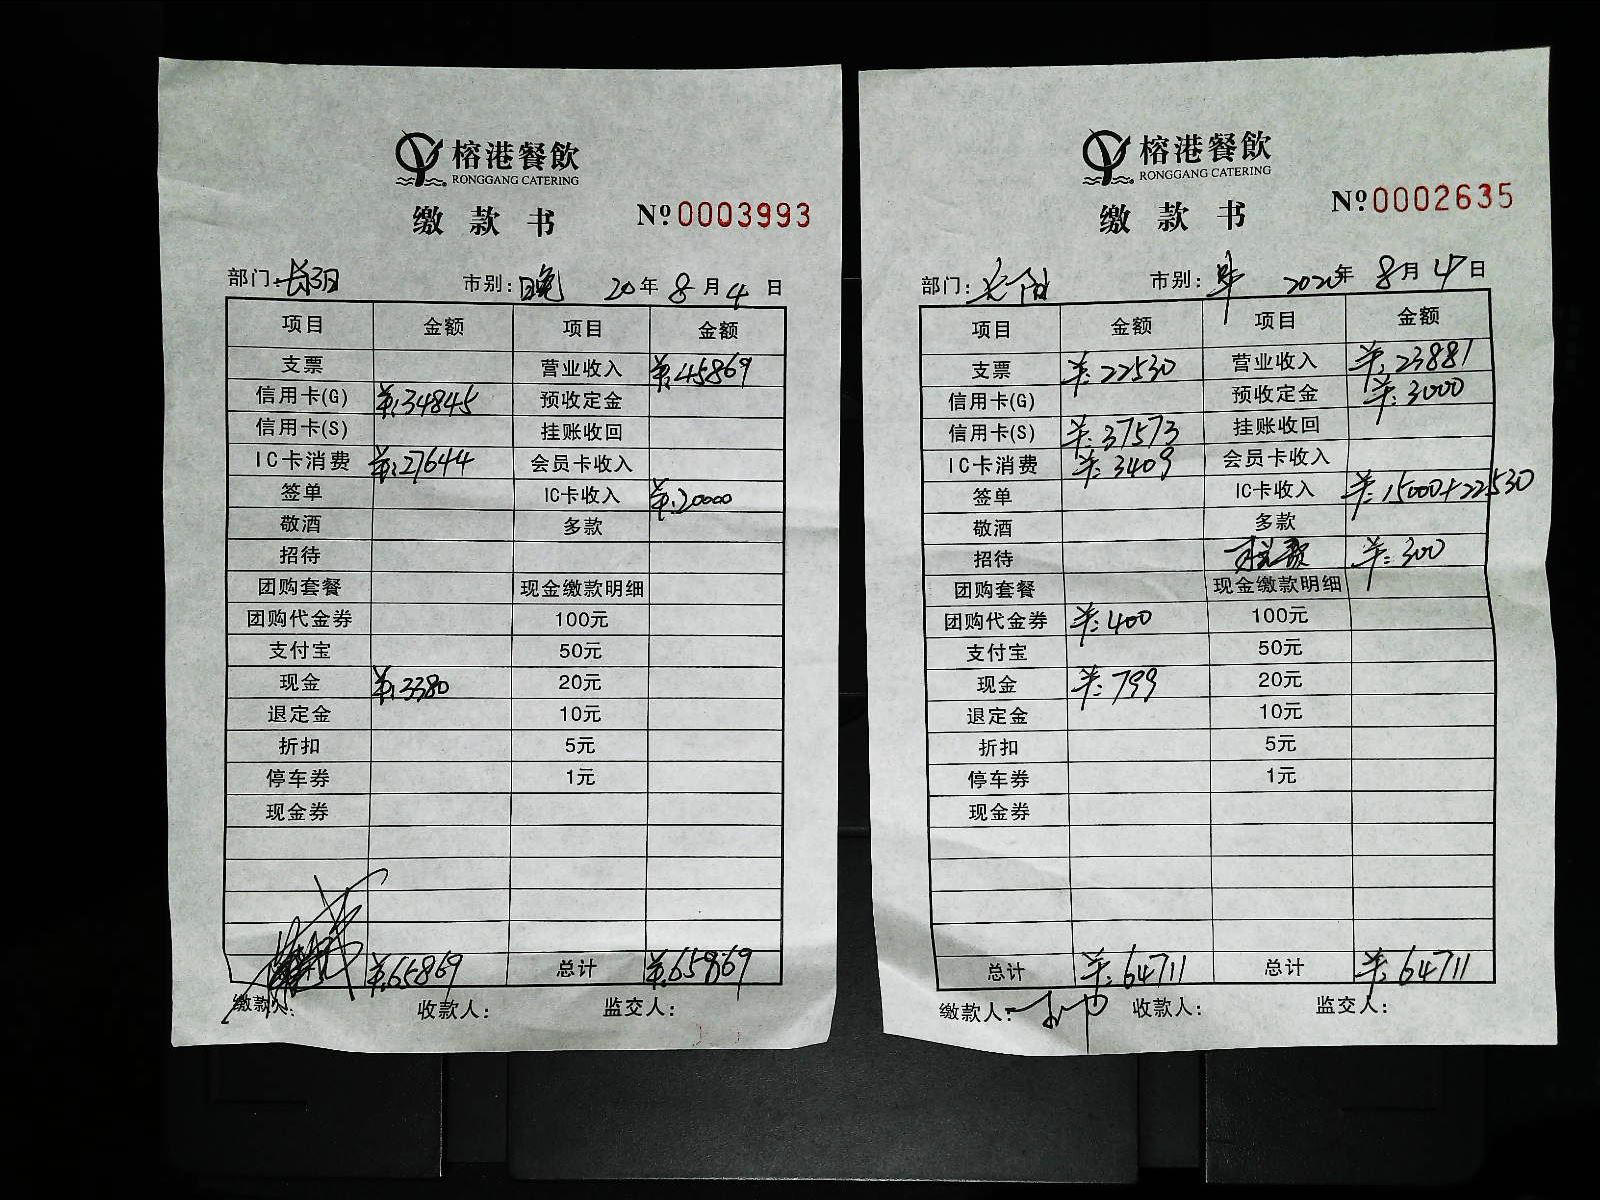 榕港餐飲
RONGGANG CATERING
缴款书 №0003993
部门:长阳 市别:晚 20年8月4日
项目 金额 项目 金额
支票 营业收入 ¥:45869
信用卡(G) ¥:34845 预收定金
信用卡(S) 挂账收回
IC卡消费 ¥:27644 会员卡收入
签单 IC卡收入 ¥:20000
敬酒 多款
招待
团购套餐 现金缴款明细
团购代金券 100元
支付宝 50元
现金 ¥:3380 20元
退定金 10元
折扣 5元
停车券 1元
现金券
¥:65869 总计 ¥:65869
缴款人: 收款人: 监交人:
榕港餐飲
RONGGANG CATERING
缴款书 №0002635
部门:长阳 市别:早 2020年8月4日
项目 金额 项目 金额
支票 ¥:22530 营业收入 ¥:23881
信用卡(G) 预收定金 ¥:3000
信用卡(S) ¥:37573 挂账收回
IC卡消费 ¥:3409 会员卡收入
签单 IC卡收入 ¥:15000+22530
敬酒 多款
招待 ¥:300
团购套餐 现金缴款明细
团购代金券 ¥:400 100元
支付宝 50元
现金 ¥:799 20元
退定金 10元
折扣 5元
停车券 1元
现金券
总计 ¥:64711 总计 ¥:64711
缴款人: 收款人: 监交人: